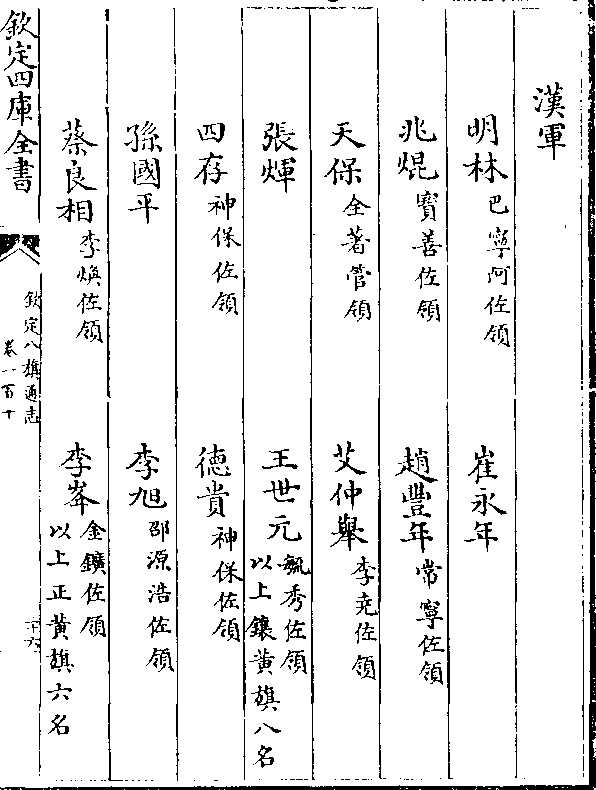 漢軍
明林 巴寧阿佐領 崔永年
兆焜 寳善佐領 趙豐年 常寧佐領
天保 全著管領 艾仲舉 李尭佐領
張煇 王世元 毓秀佐領 以上鑲黄旗八名
四存 神保佐領 德貴 神保佐領
孫國平 李旭 邵源浩佐領
蔡良相 李煥佐領 李峯 金鑛佐領 以上正黄旗六名
欽定四庫全書
欽定八旗通志
卷一百十